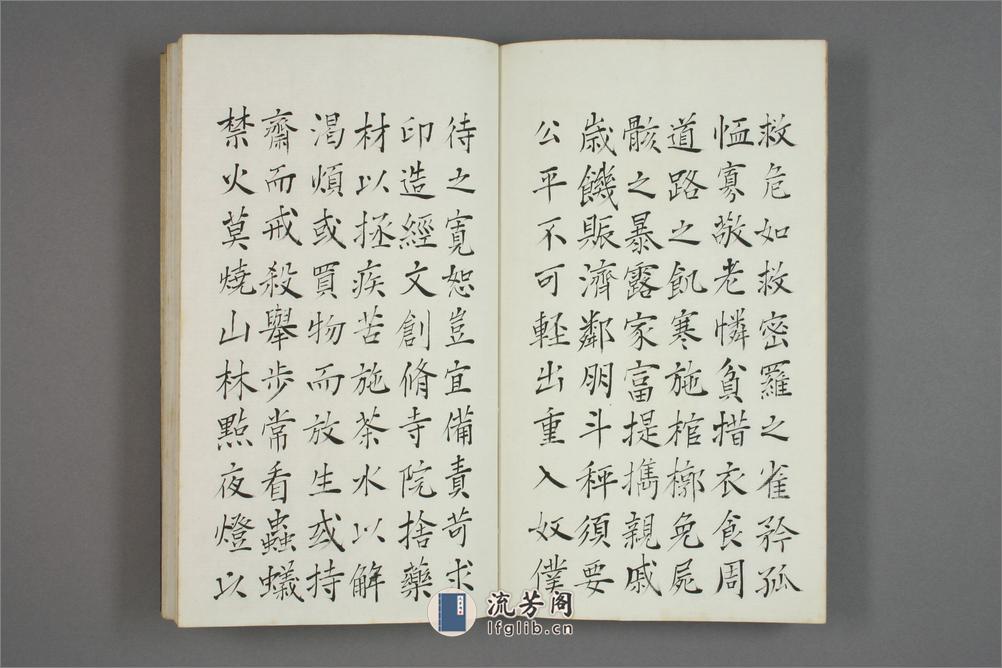 救危如救密羅之雀矜孤
恤寡敬老憐貧措衣食周
道路之飢寒施棺槨免屍
骸之暴露家富提攜親戚
歲饑賑濟鄰朋斗秤須要
公平不可軽出重入奴僕
待之寬恕豈宜備責苛求
印造經文創脩寺院捨藥
材以拯疾苦施茶水以解
渴煩或買物而放生或持
齋而戒殺舉步常看蟲蟻
禁火莫燒山林點夜燈以
流芳阁
lfglib.cn